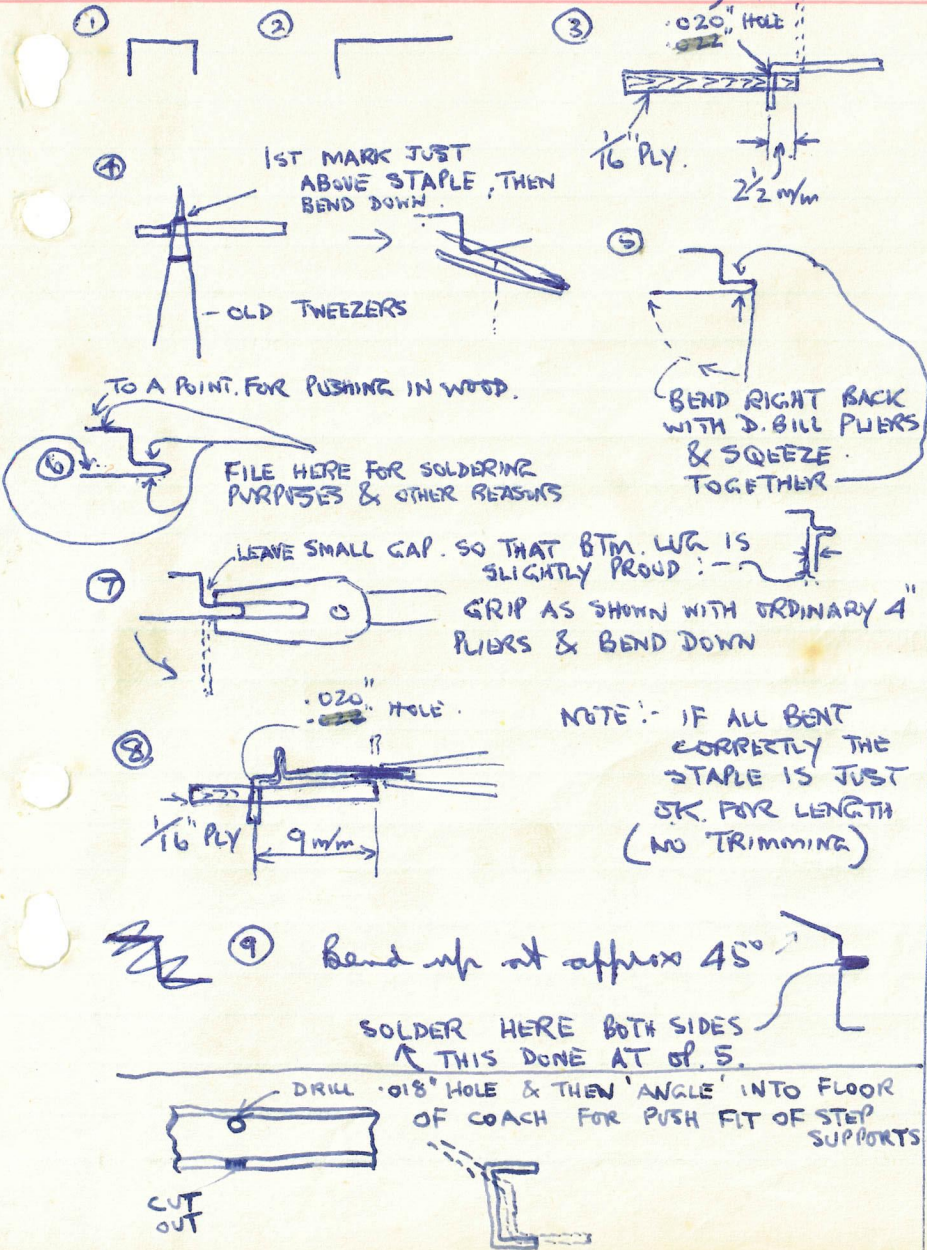 ①
②
③
.020" HOLE
.022"
1/16" PLY.
2 1/2 m/m
④
1ST MARK JUST
ABOVE STAPLE, THEN
BEND DOWN.
OLD TWEEZERS
⑤
BEND RIGHT BACK
WITH D. BILL PLIERS
& SQEEZE
TOGETHER
TO A POINT. FOR PUSHING IN WOOD.
⑥
FILE HERE FOR SOLDERING
PURPOSES & OTHER REASONS
⑦
LEAVE SMALL GAP. SO THAT BTM. LUG IS
SLIGHTLY PROUD :-
GRIP AS SHOWN WITH ORDINARY 4"
PLIERS & BEND DOWN
⑧
.020" HOLE.
.022
1/16" PLY
9 m/m
NOTE :- IF ALL BENT
CORRECTLY THE
STAPLE IS JUST
O.K. FOR LENGTH
(NO TRIMMING)
⑨ Bend up at approx 45°
SOLDER HERE BOTH SIDES
THIS DONE AT OP. 5.
DRILL .018" HOLE & THEN 'ANGLE' INTO FLOOR
OF COACH FOR PUSH FIT OF STEP
SUPPORTS
CUT
OUT